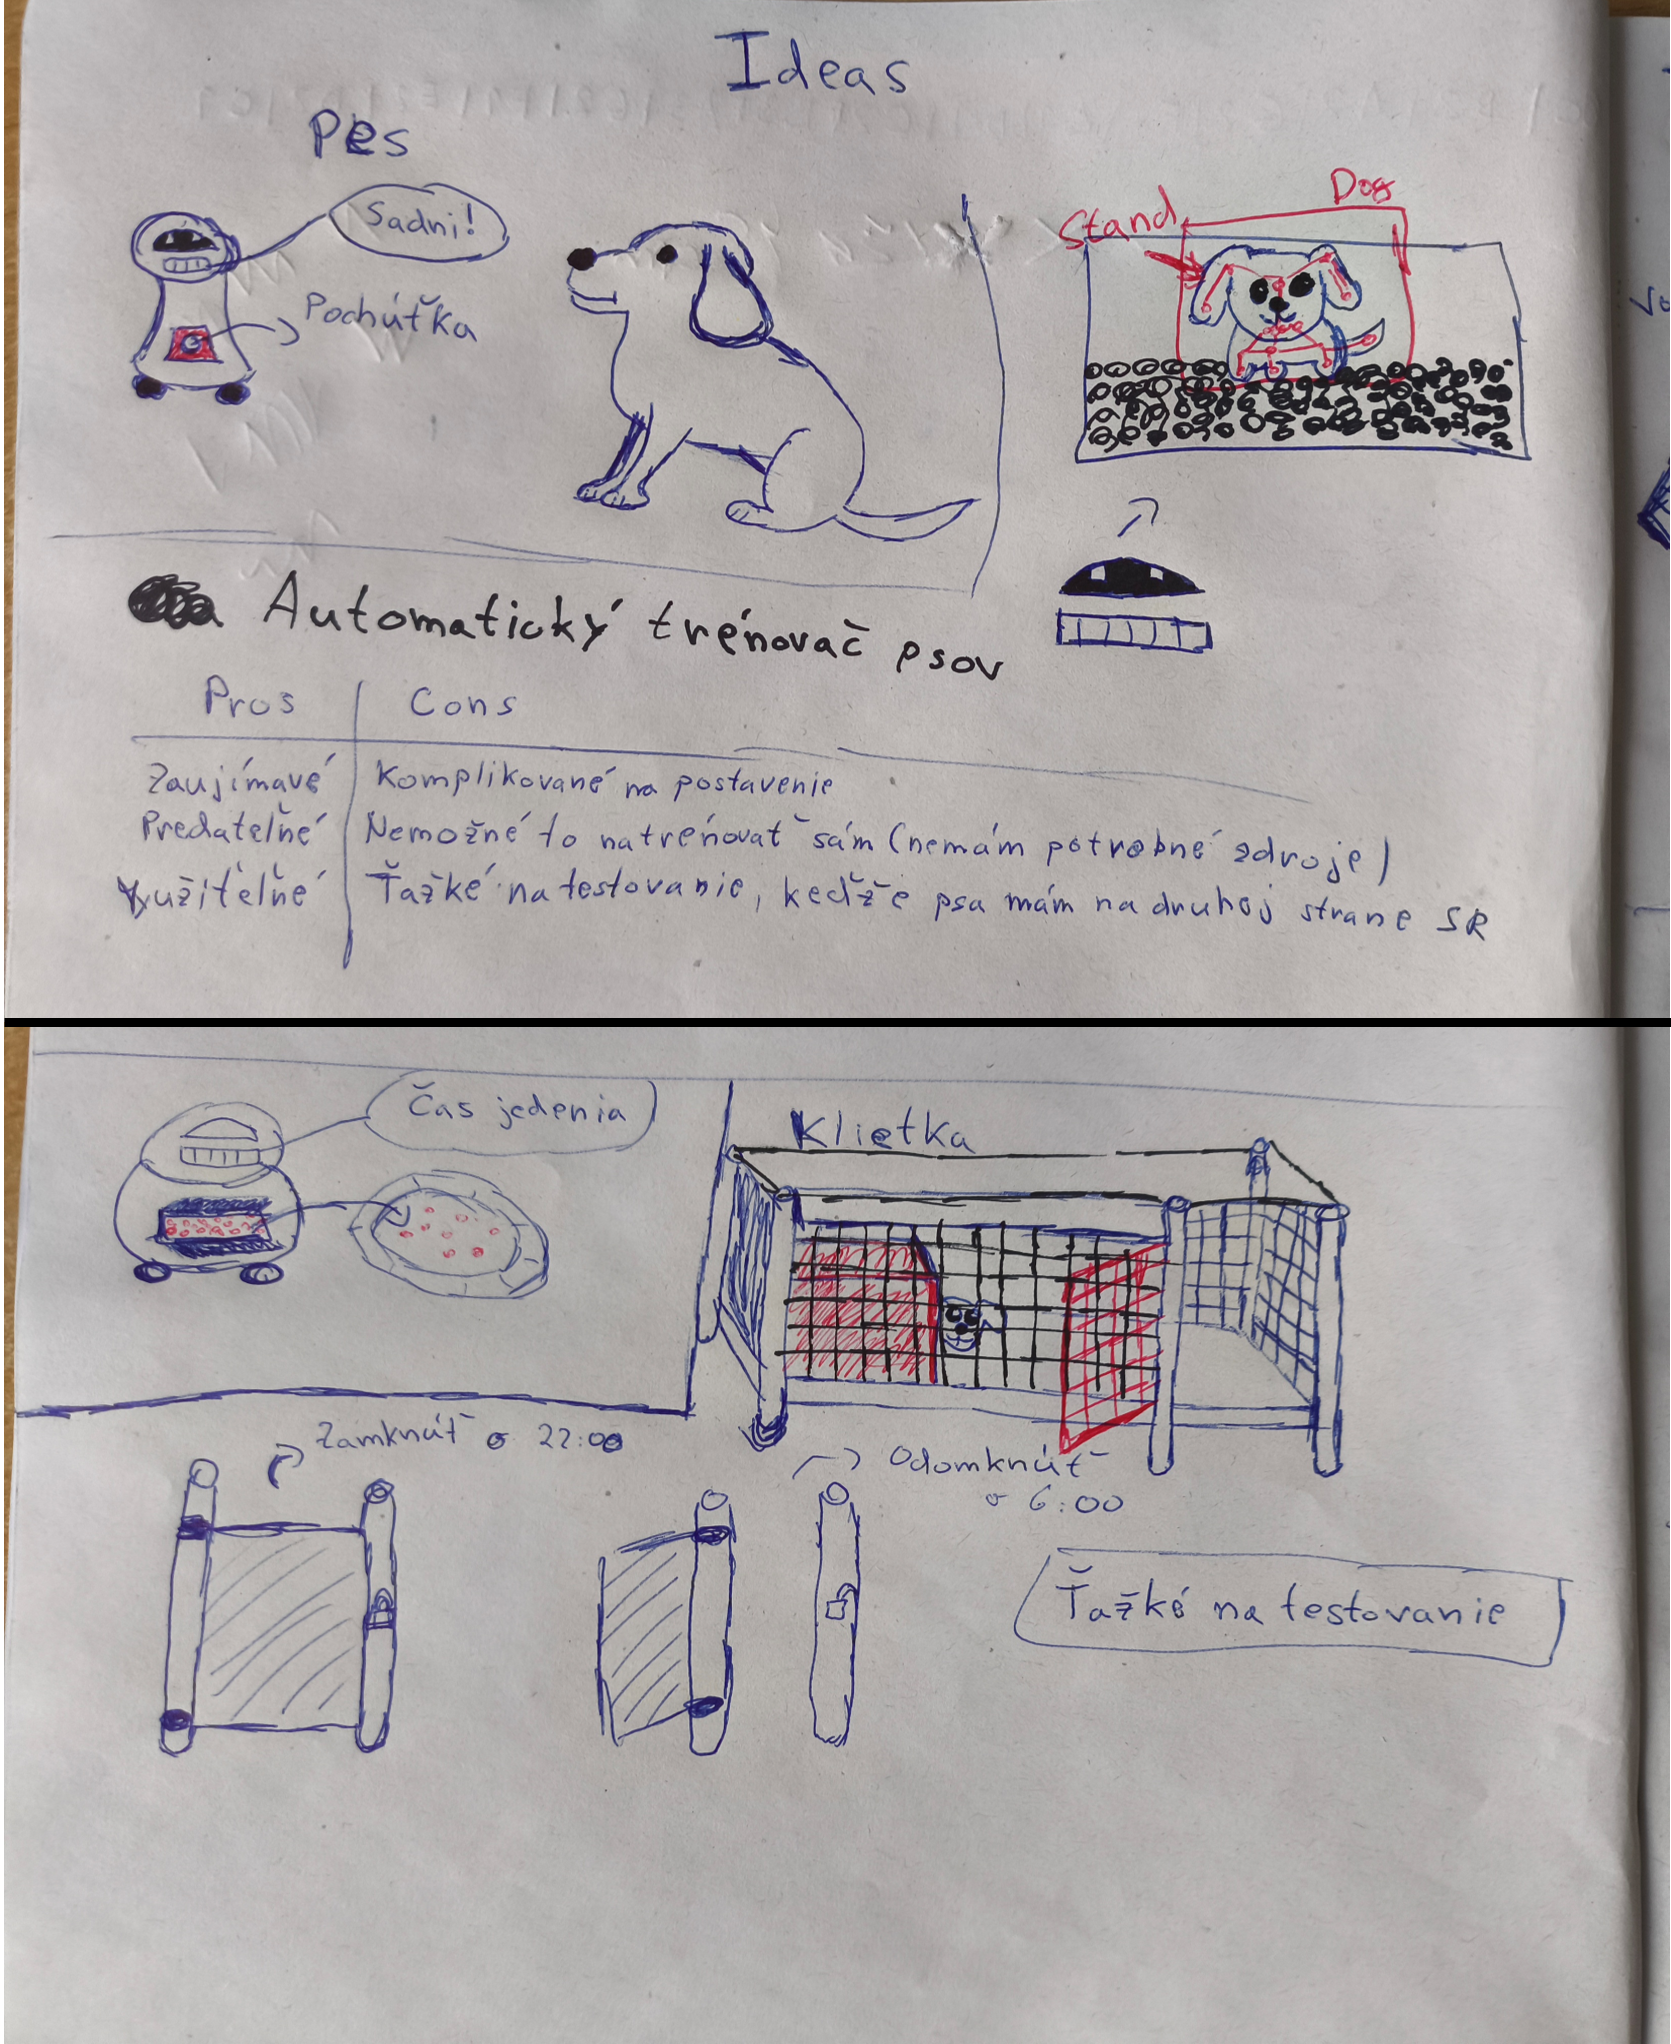 Ideas
Pes
Sadni!
Pochúťka
Stand
Dog
Automatický trénovač psov
Pros
Cons
Zaujímavé
Komplikované na postavenie
Predateľné
Nemožné to natrénovať sám (nemám potrebné zdroje)
Využiteľné
Ťažké na testovanie, keďže psa mám na druhej strane SR
Čas jedenia
Klietka
Zamknúť o 22:00
Odomknúť
o 6:00
Ťažké na testovanie